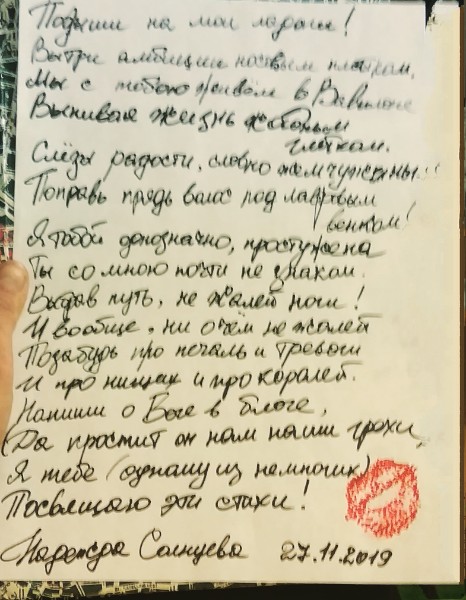 Подыши на мои ладони!
Вытри амбиции носовым платком,
Мы с тобою живём в Вавилоне
Выпивая жизнь жабьим
глотком.
Слёзы радости, словно жемчужины!!
Поправь прядь волос под лавровым
венком!
Я тобой однозначно, простужена
Ты со мною почти не знаком.
Выбрав путь, не жалей ноги!
И вообще, ни о чём не жалей
Позабудь про печаль и тревоги
И про нищих и про королей.
Напиши о Боге в блоге,
(Да простит он нам наши грехи,
Я тебе (одному из немногих)
Посвящаю эти стихи!
Надежда Солнцева 27.11.2019